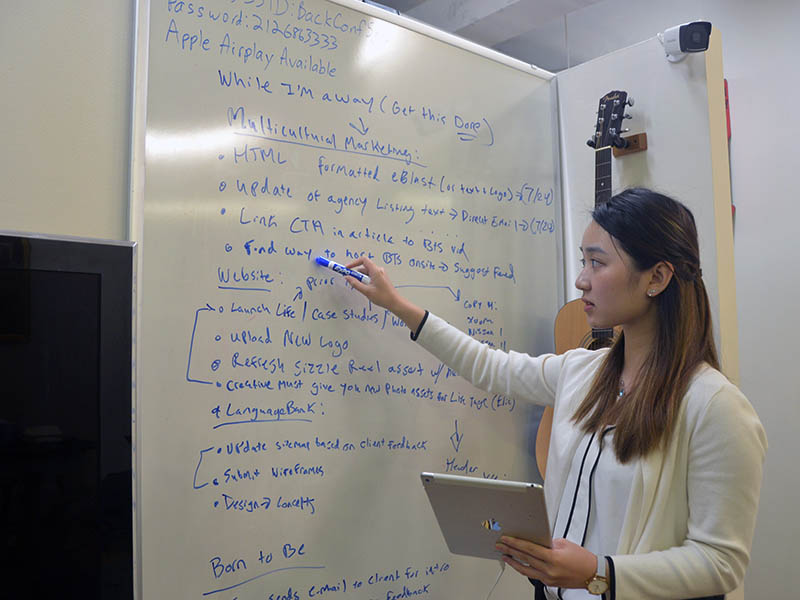 ID:BackConf
Password: 2126863333
Apple Airplay Available
While I'm away (Get this Done)
Multicultural Marketing:
• HTML formatted eBlast (or text + logo) → (7/24)
• Update of agency Listing text → Direct Email → (7/24)
• Link CTA in article to BTS vid
• Find way to host BTS onsite → Suggest feed
Website:
• Launch Life / Case Studies / Wor
• Upload New Logo
• Refresh Sizzle Reel asset w/
• Creative must give you new photo assets for Life Page (Eric)
Copy 4:
Xoom
Nissan 1
* LanguageBank:
• Update sitemap based on client feedback
• Submit Wireframes
• Design → Concepts
Header
Born to Be
sends e-mail to client for intro
feedback
Fender